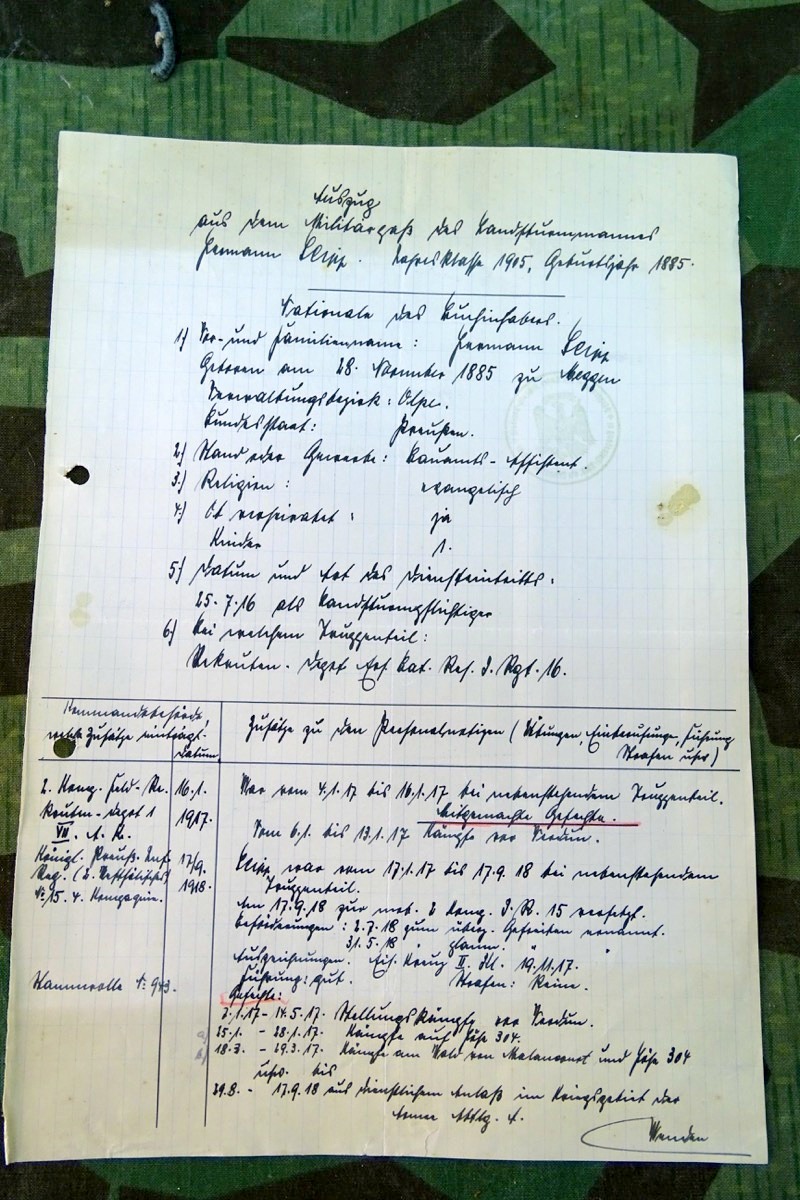 Auszug
aus dem Militärpaß des Landsturmmannes
Hermann Seipp. Jahresklasse 1905, Geburtsjahr 1885.
Nationale des Buchinhabers.
1) Vor- und Familienname: Hermann Seipp
Geboren am 28. November 1885 zu Meggen
Verwaltungsbezirk: Olpe.
Bundesstaat: Preußen.
2.) Stand oder Gewerbe: Bauamts-Assistent.
3.) Religion: evangelisch
4.) Ob verheiratet: ja
Kinder 1.
5) Datum und Art des Diensteintritts:
25.7.16 als Landsturmpflichtiger
6) Bei welchem Truppenteil:
Rekruten-Depot Ers. Bat. Res. I. Rgt. 16.
Kommandobehörde, welche Zusätze einträgt.
Datum
Zusätze zu den Personalnotizen (Übungen, Einberufung, Führung
Strafen usw)
2. Komp. Feld-Re-
kruten-Depot 1
VII. A. K.
16.1.
1917.
War vom 4.1.17 bis 16.1.17 bei nebenstehendem Truppenteil.
Mitgemachte Gefechte.
Vom 6.1. bis 13.1.17 Kämpfe vor Verdun.
Königl. Preuß. Inf.
Reg. (2. Westfälisches)
No. 15. 4. Kompagnie.
17/9.
1918.
Seipp war vom 17.1.17 bis 17.9.18 bei nebenstehendem
Truppenteil.
Am 17.9.18 zur 2 Komp. I. R. 15 versetzt.
Beförderungen: 2.7.18 zum überz. Gefreiten ernannt.
31.5.18 " planm. " "
Auszeichnungen. Eis. Kreuz II. Kl. 19.11.17.
Stammrolle No. 943.
Führung: gut. Strafen: Keine.
Gefechte:
14.5.17. Stellungskämpfe vor Verdun.
a) 25.1. - 28.1.17 Kämpfe auf Höhe 304.
b) 18.3. - 29.3.17. Kämpfe am Wald von Malancourt und Höhe 304
usw. bis
29.8. - 17.9.18 aus dienstlichem Anlaß im Kriegsgebiet der
Armee Abtlg. A.
Wenden